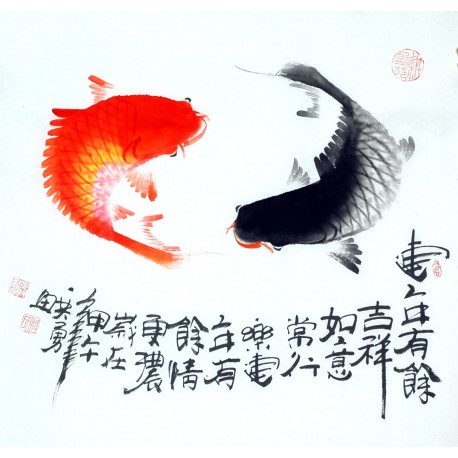 連年有餘
吉祥
如意
常行
樂連
年有
餘情
更濃
歲在
甲午
英勇